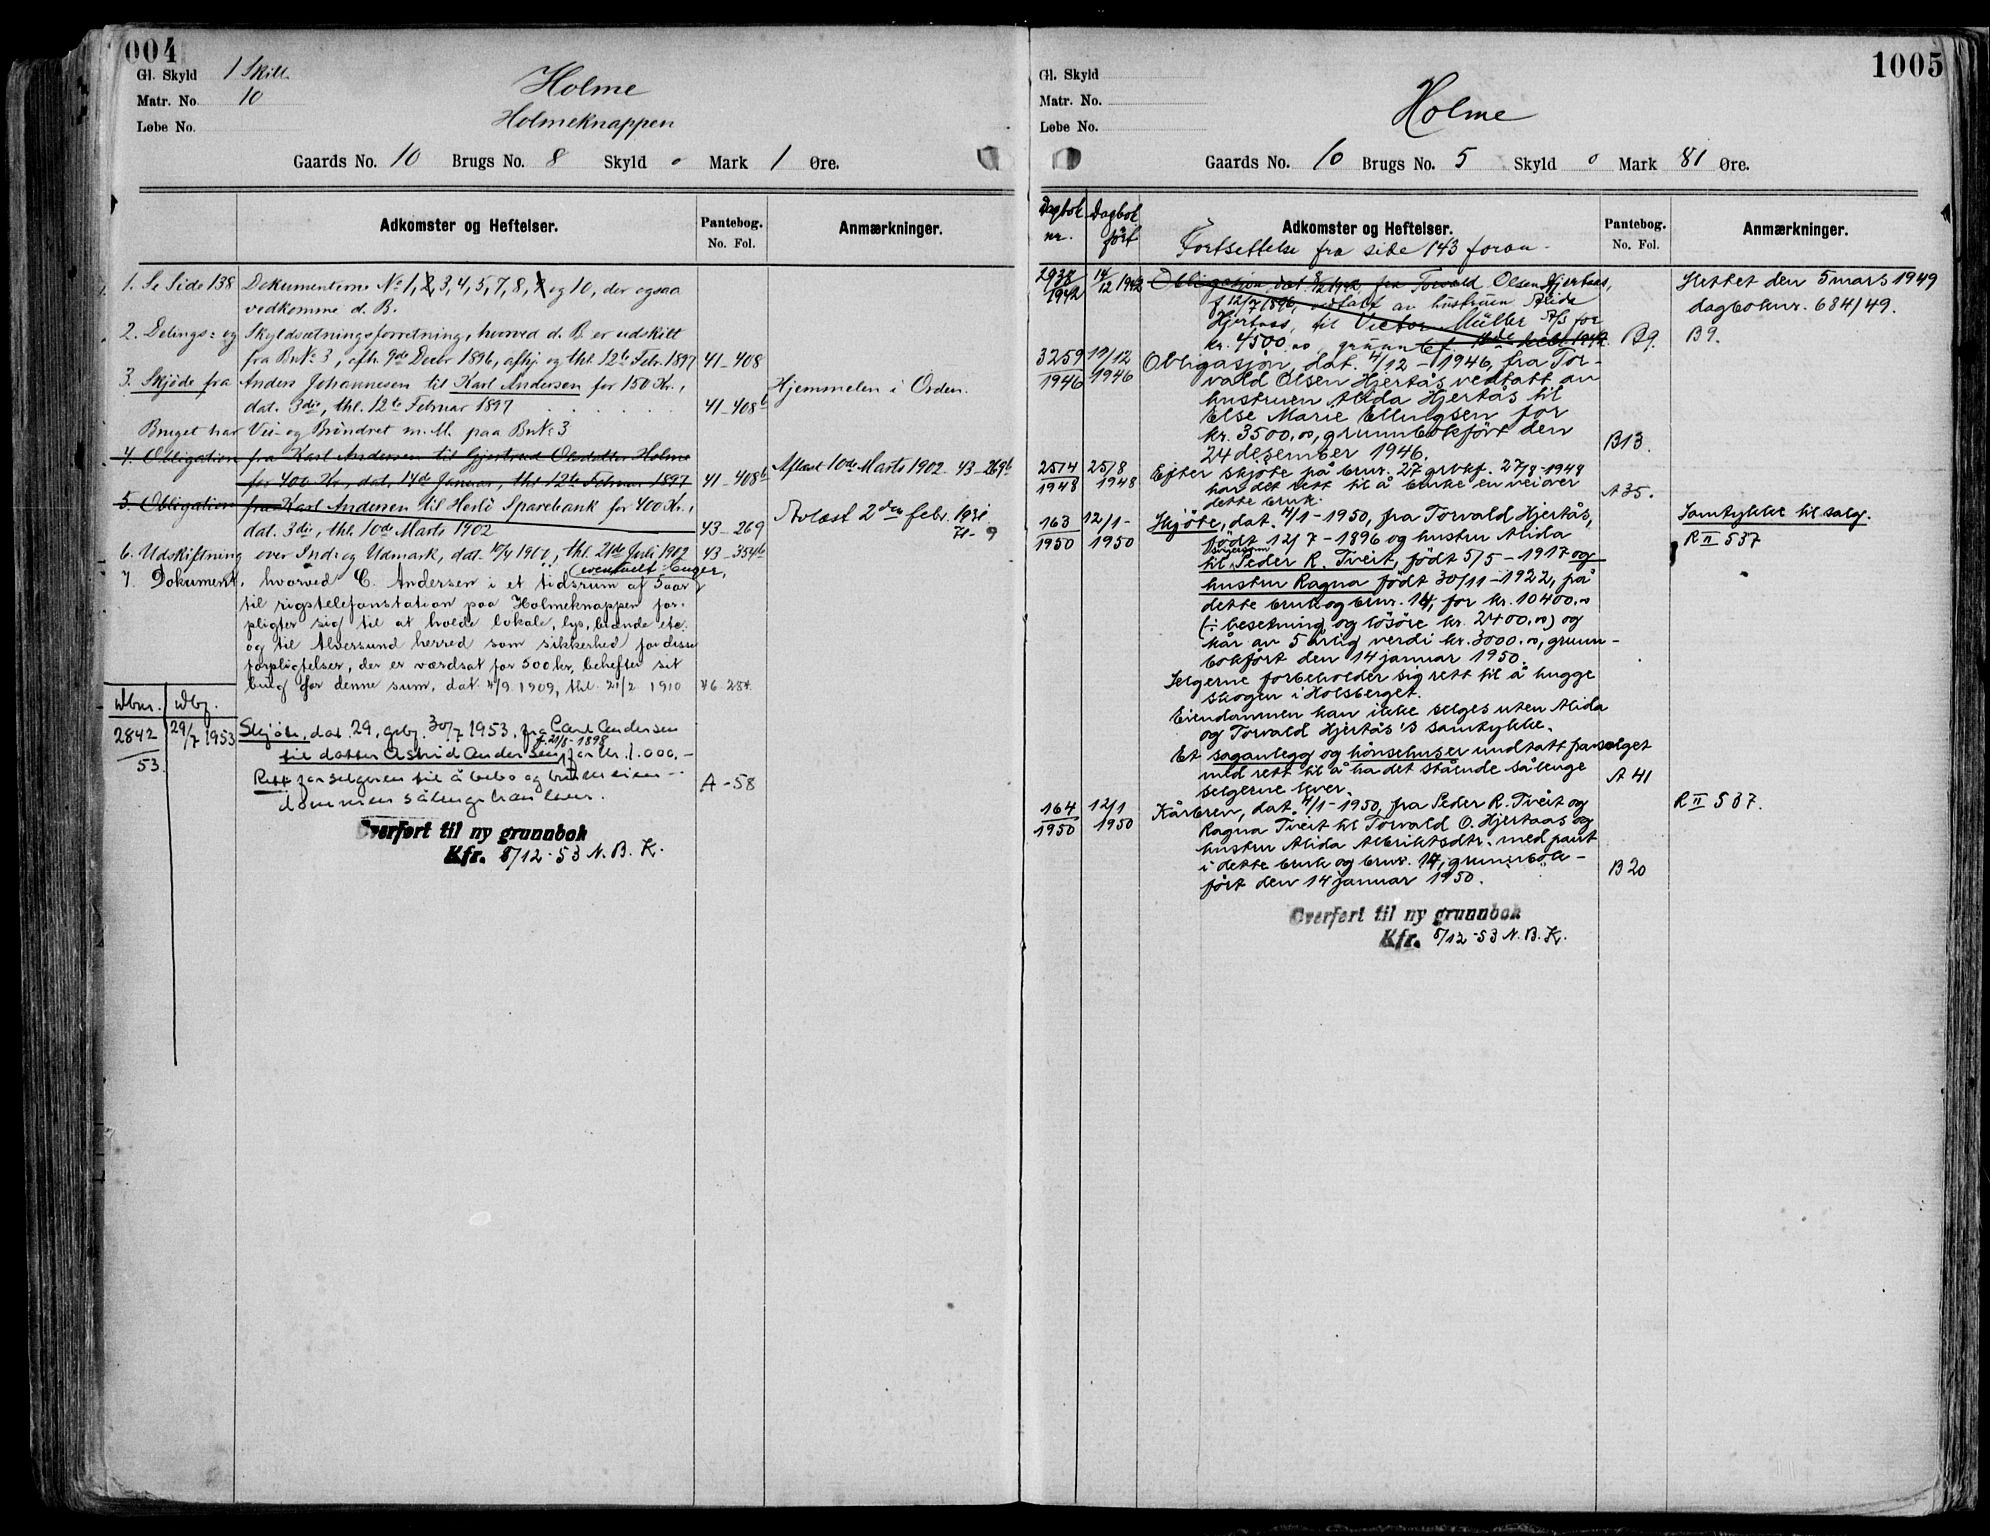 004
Gl. Skyld 1 Skill.
Matr. No. 10
Løbe No.
Holme
Holmeknappen
Gaards No. 10 Brugs No. 8 Skyld 0 Mark 1 Øre.
Adkomster og Heftelser.
Pantebog.
No. Fol.
Anmærkninger.
1. Se Side 138 Dokumenterne No 1, 2, 3, 4, 5, 7, 8, 9 og 10, der ogsaa
vedkomme d. B.
2. Delings- og Skyldsætningsforretning, hvorved d. B. er udskilt
fra BrNo 3, afh. 9de Decbr 1896, afhj. og thl. 12te Febr. 1897 41-408
3. Skjøde fra Anders Johannesen til Karl Andersen for 150 Kr.,
dat. 3die, thl. 12te Februar 1897 41-408b
Hjemmelen i Orden.
Bruget har Vei- og Brøndret m. M. paa BrNo 3
4. Obligation fra Karl Andersen til Gjertrud Olsdatter Holme
for 400 Kr., dat. 14de Januar, thl. 12te Februar 1897 41-408b
Aflæst 10de Marts 1902. 43-269b
5. Obligation fra Karl Andersen til Herlø Sparebank for 400 Kr.,
dat. 3die, thl. 10de Marts 1902 43-269
Avlæst 2den febr. 1931
71-9
6. Udskiftning over Ind- og Udmark, dat. 10/4 1900, thl. 21de Juli 1902 43-354b
7. Dokument, hvorved C. Andersen i et tidsrum af 5 aar,
(eventuelt længer,
til rigstelefonstation paa Holmeknappen for-
pligter sig til at holde lokale, lys, brænde etc.
og til Alversund herred som sikkerhed for disse
forpligtelser, der er værdsat for 500 kr, behefter sit
brug for denne sum, dat. 4/9 1909, thl. 21/2 1910 46-284.
Dbnr. Dbf.
2842/53. 29/7 1953 Skjøte, dat. 29, grbf. 30/7 1953, fra Carl Andersen
til datter Astrid Andersen, f. 21/8-1898 for kr. 1.000,-
Rett for selgeren til å bebo og bruke eien-
dommen sålenge han lever. A-58
Overført til ny grunnbok
Kfr. 8/12-53 N. B. K.
1005
Gl. Skyld
Matr. No.
Løbe No.
Holme
Gaards No. 10 Brugs No. 5 Skyld 0 Mark 81 Øre.
Dagbok nr.
Dagbok ført
Adkomster og Heftelser.
Pantebog.
No. Fol.
Anmærkninger.
Fortsettelse fra side 143 foran.
2938/1942 14/12 1942 Obligasjon dat. 9/12 1942, fra Torvald Olsen Hjertaas,
f. 12/7 1896, vedtatt av hustruen Alida
Hjertaas, til Victor Müller A/S for
kr. 4500.00, grunnbf. 16de decbr. 1942. B9.
Slettet den 5 mars 1949
dagboknr. 684/49.
B9.
3259/1946 19/12 1946 Obligasjon, dat. 4/12-1946, fra Tor-
vald Olsen Hjertås vedtatt av
hustruen Alida Hjertås til
Else Marie Ellingsen for
kr. 3500.00, grunnbokført den
24 desember 1946. B13.
2574/1948 25/8 1948 Efter skjøte på brnr. 27 grbkf. 27/8-1948
har det rett til å bruke en vei over
dette bruk. A35.
163/1950 12/1-1950 Skjøte, dat. 4/1-1950, fra Torvald Hjertås,
født 12/7-1896 og hustru Alida
til Peder R. Tveit, født 5/5-1917 og
hustru Ragna født 30/11-1922, på
dette bruk og brnr. 14, for kr. 10400.00
(÷ besetning og løsøre kr. 2400.00) og
kår av 5 årlig verdi kr. 3000.00, grunn-
bokført den 14 januar 1950.
Samtykke til salg.
R II 537
Selgerne forbeholder sig rett til å hugge
skogen i Holsberget.
Eiendommen kan ikke selges uten Alida
og Torvald Hjertås's samtykke.
Et saganlegg og hønsehuser undtatt fra salget
med rett til å ha det stående sålenge
selgerne lever. A 41
164/1950 12/1 1950 Kårbrev, dat. 4/1-1950, fra Peder R. Tveit og
Ragna Tveit til Torvald O. Hjertaas og
hustru Alida Albriktsdtr. med pant
i dette bruk og brnr. 14, grunnbok-
ført den 14 januar 1950. B20
R II 537.
Overført til ny grunnbok
Kfr. 8/12-53 N. B. K.